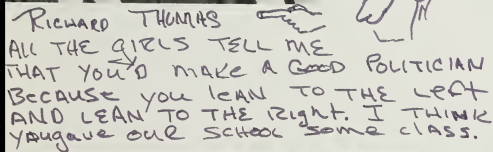 RICHARD THOMAS
ALL THE GIRLS TELL ME
THAT YOU'D MAKE A GOOD POLITICIAN
BECAUSE YOU LEAN TO THE LEFT
AND LEAN TO THE RIGHT. I THINK
YOUGAVE OUR SCHOOL SOME CLASS.